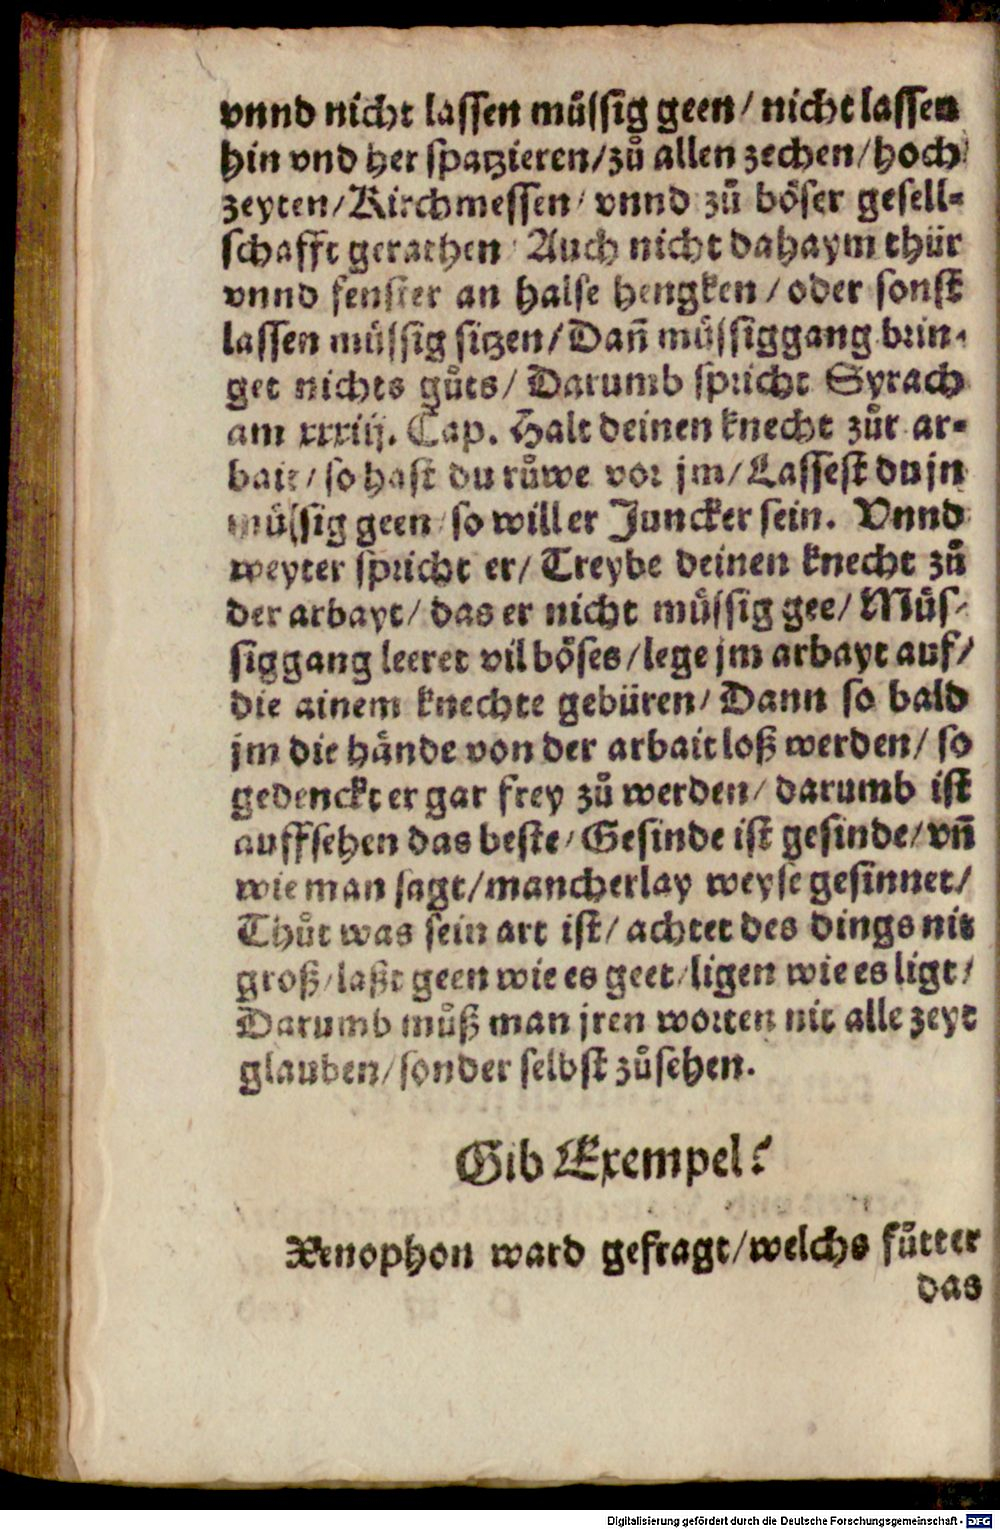 vnnd nicht lassen müssig geen / nicht lassen
hin vnd her spatzieren / zů allen zechen / hoch
zeyten / Kirchmessen / vnnd zů böser gesell⸗
schafft gerathen / Auch nicht dahaym thür
vnnd fenster an halse hengken / oder sonst
lassen müssig sitzen / Dañ müssiggang brin⸗
get nichts gůts / Darumb spricht Syrach
am xxxiij. Cap. Halt deinen knecht zůr ar⸗
bait / so hast du růwe vor jm / Lassest du jn
müssig geen / so will er Juncker sein. Vnnd
weyter spricht er / Treybe deinen knecht zů
der arbayt / das er nicht müssig gee / Müs⸗
siggang leeret vil böses / lege jm arbayt auf /
die ainem knechte gebüren / Dann so bald
jm die hände von der arbait loß werden / so
gedenckt er gar frey zů werden / darumb ist
auffsehen das beste / Gesinde ist gesinde / vñ
wie man sagt / mancherlay weyse gesinnet /
Thůt was sein art ist / achtet des dings nit
groß / laßt geen wie es geet / ligen wie es ligt /
Darumb můß man jren worten nit alle zeyt
glauben / sonder selbst zůsehen.
Gib Exempel?
Xenophon ward gefragt / welchs fůtter
das
Digitalisierung gefördert durch die Deutsche Forschungsgemeinschaft - DFG